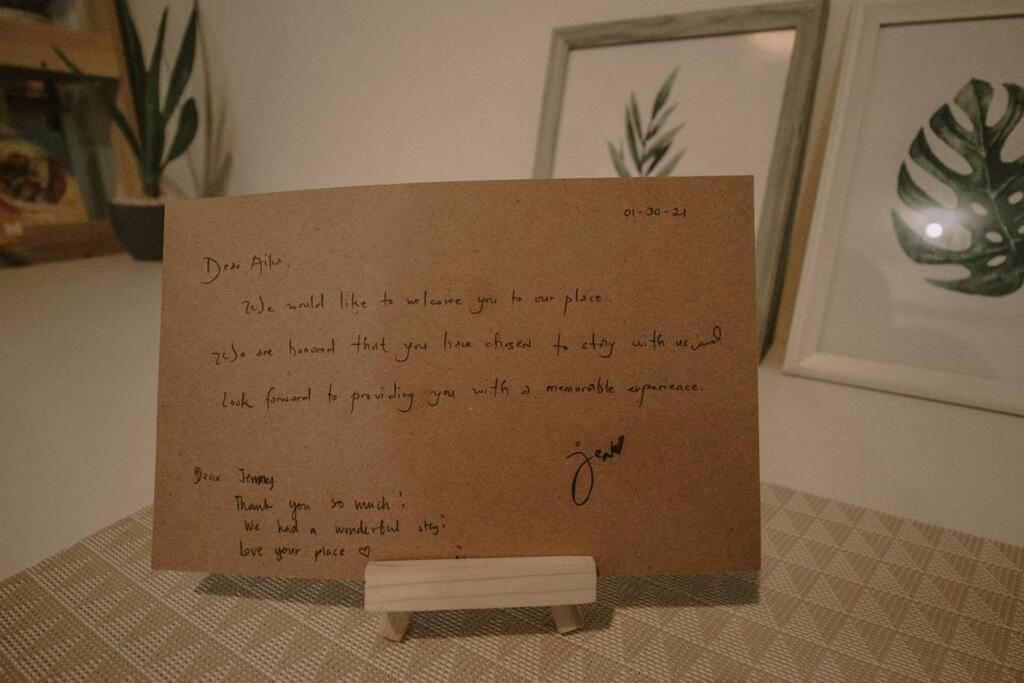 01-30-21
Dear Aika,
We would like to welcome you to our place.
We are honored that you have chosen to stay with us and
Look forward to providing you with a memorable experience.
jen
Dear Jemmy
Thank you so much!
We had a wonderful stay!
Love your place ♡